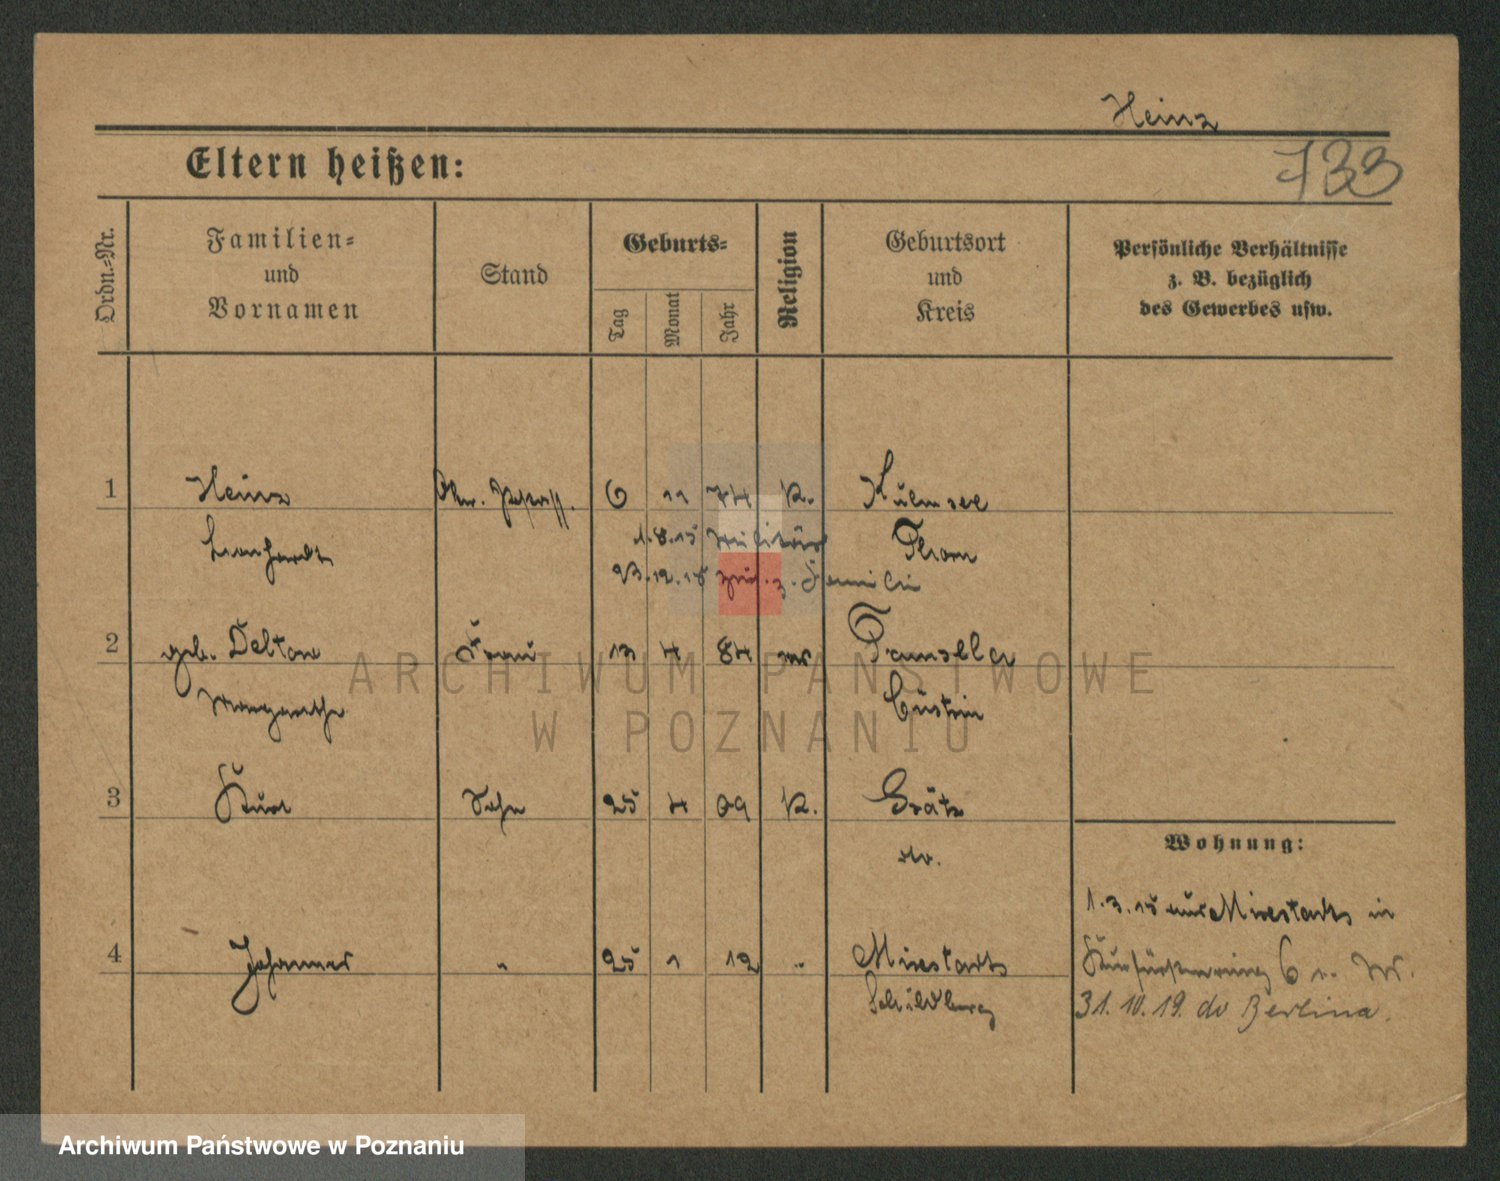 Heinz
733
Eltern heißen:
Ordn.-Nr.
Familien-
und
Vornamen
Stand
Geburts-
Tag
Monat
Jahr
Religion
Geburtsort
und
Kreis
Persönliche Verhältnisse
z. B. bezüglich
des Gewerbes usw.
1 Heinz 6 11 74 K. Kulmsee
Leonhardt 1.8.15 Militär Thorn
23.12.18 zur. z. Familie
2 geb. Delton Frau 13 4 84 Tamsel
Margarethe Cüstrin
3 Kurt Sohn 25 4 09 K. Grätz
do.
Wohnung:
1.3.15 aus Mixstadt in
4 Johannes " 25 1 12 " Mixstadt
Kurfürstenring 6
Schildberg
31.10.19. do Berlina.
ARCHIWUM PAŃSTWOWE
W POZNANIU
Archiwum Państwowe w Poznaniu